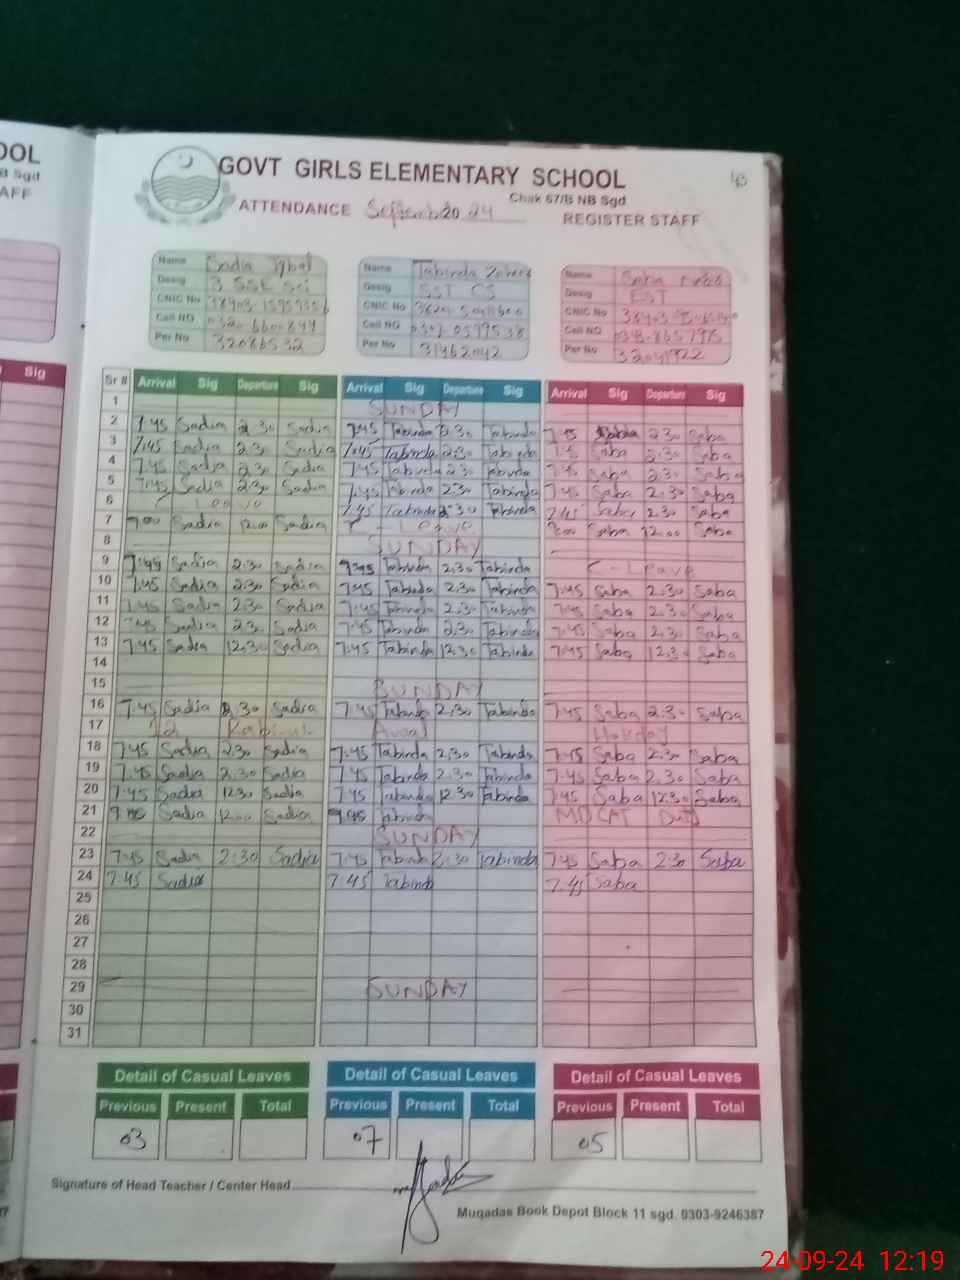 OOL
B Sgd
AFF
GOVT GIRLS ELEMENTARY SCHOOL
Chak 67/B NB Sgd
ATTENDANCE September 2024 REGISTER STAFF
Name Sadia Iqbal Name Tabinda Name Saba
Desig SSE Sci Desig SST CS Desig EST
CNIC No CNIC No CNIC No
Cell NO Cell NO Cell NO
Per No 32086532 Per No 31462042 Per No
Sig
Sr # Arrival Sig Departure Sig Arrival Sig Departure Sig Arrival Sig Departure Sig
1 SUNDAY
2 7:45 Sadia 2:30 Sadia 7:45 Tabinda 2:30 Tabinda 7:45 Saba 2:30 Saba
3 7:45 Sadia 2:30 Sadia 7:45 Tabinda 2:30 Tabinda 7:45 Saba 2:30 Saba
4 7:45 Sadia 2:30 Sadia 7:45 Tabinda 2:30 Tabinda 7:45 Saba 2:30 Saba
5 7:45 Sadia 2:30 Sadia 7:45 Tabinda 2:30 Tabinda 7:45 Saba 2:30 Saba
6 Leave 7:45 Tabinda 2:30 Tabinda 7:45 Saba 2:30 Saba
7 9:00 Sadia 12:00 Sadia Leave 9:00 Saba 12:00 Saba
8 SUNDAY
9 7:45 Sadia 2:30 Sadia 7:45 Tabinda 2:30 Tabinda Leave
10 7:45 Sadia 2:30 Sadia 7:45 Tabinda 2:30 Tabinda 7:45 Saba 2:30 Saba
11 7:45 Sadia 2:30 Sadia 7:45 Tabinda 2:30 Tabinda 7:45 Saba 2:30 Saba
12 7:45 Sadia 2:30 Sadia 7:45 Tabinda 2:30 Tabinda 7:45 Saba 2:30 Saba
13 7:45 Sadia 12:30 Sadia 7:45 Tabinda 12:30 Tabinda 7:45 Saba 12:30 Saba
14
15 SUNDAY
16 7:45 Sadia 2:30 Sadia 7:45 Tabinda 2:30 Tabinda 7:45 Saba 2:30 Saba
17 12 Rabi-ul Awal Holiday
18 7:45 Sadia 2:30 Sadia 7:45 Tabinda 2:30 Tabinda 7:45 Saba 2:30 Saba
19 7:45 Sadia 2:30 Sadia 7:45 Tabinda 2:30 Tabinda 7:45 Saba 2:30 Saba
20 7:45 Sadia 12:30 Sadia 7:45 Tabinda 12:30 Tabinda 7:45 Saba 12:30 Saba
21 Sadia 12:00 Sadia Tabinda MDCAT Duty
22 SUNDAY
23 7:45 Sadia 2:30 Sadia 7:45 Tabinda 2:30 Tabinda 7:45 Saba 2:30 Saba
24 7:45 Sadia 7:45 Tabinda 7:45 Saba
25
26
27
28
29 SUNDAY
30
31
Detail of Casual Leaves Detail of Casual Leaves Detail of Casual Leaves
Previous Present Total Previous Present Total Previous Present Total
03 07 05
Signature of Head Teacher / Center Head
Muqadas Book Depot Block 11 sgd. 0303-9246387
24-09-24 12:19